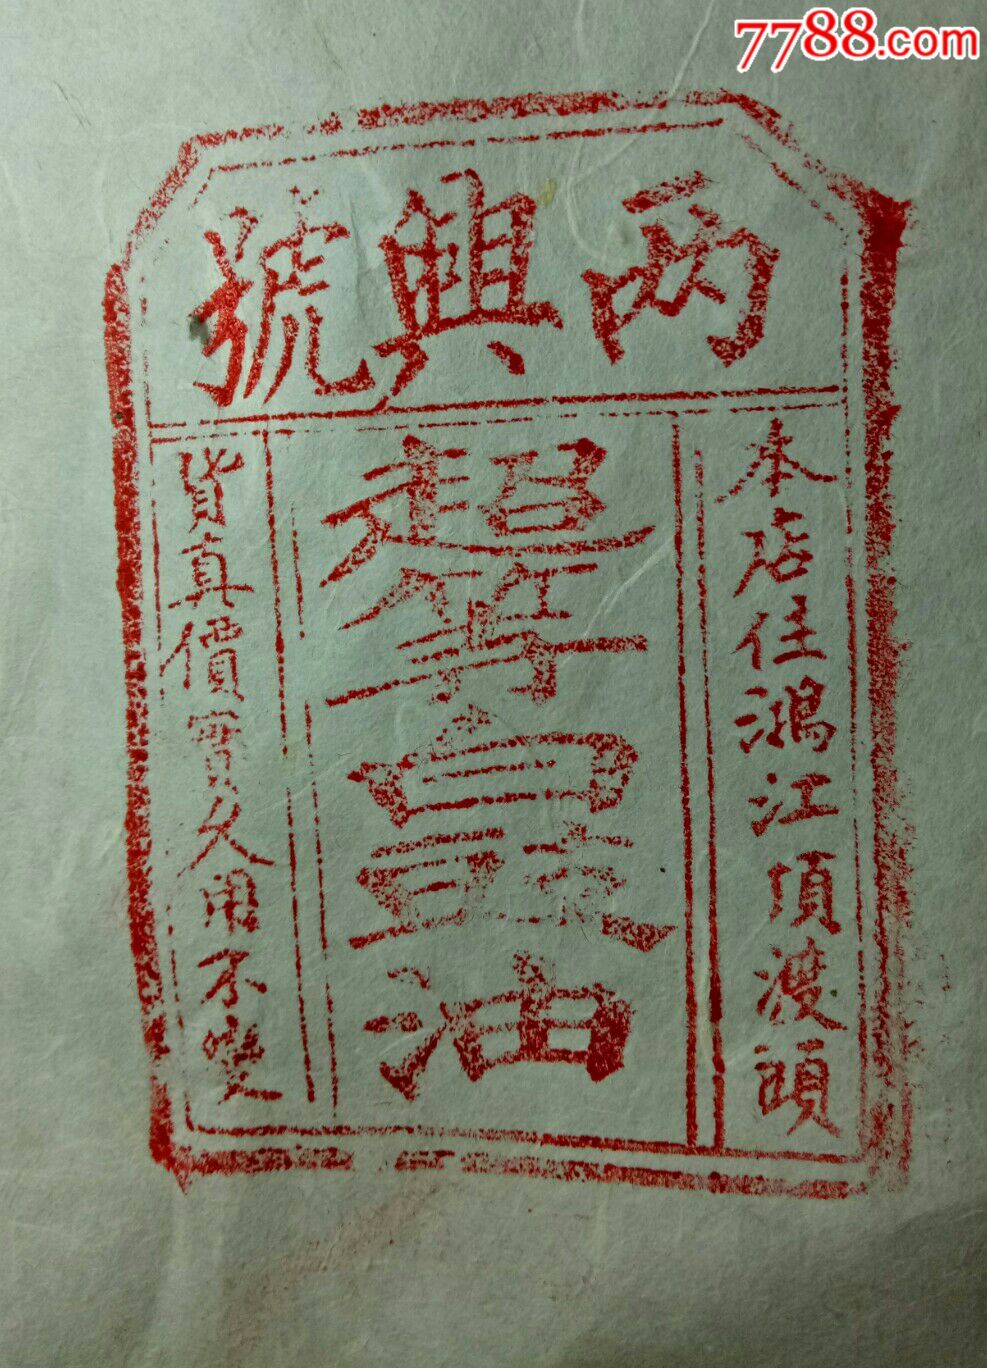 7788.com
两興號
本店住鴻江頂渡頭
超等白豉油
貨真價實久用不變